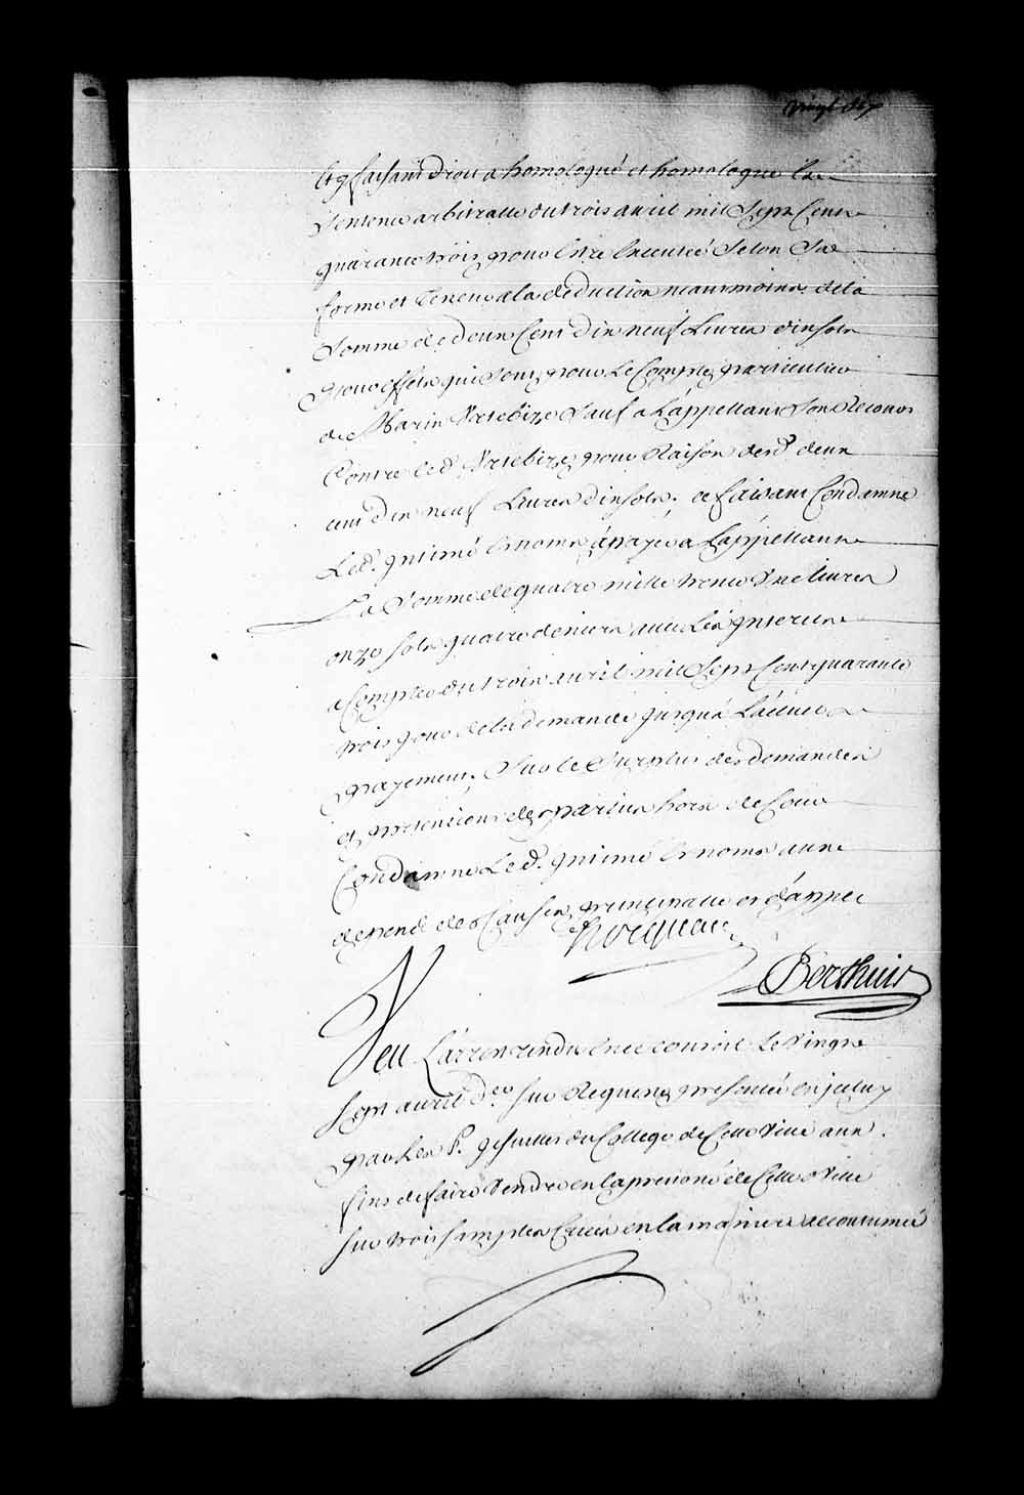 Vingt Six
Et y faisant droit a homologué et homologue La
Sentence arbitralle du trois avril mil Sept Cent
quarante trois pour Estre Executée Selon Sa
forme et Teneur a la deduction neanmoins de la
Somme de deux Cent dix neuf Livres dix sols
pour effets qui Sont pour Le Compte particulier
de Marin Sauf a L'appellant Son Recours
Contre Led. pour Raison desd. deux
cent dix neuf Livres dix sols; ce faisant Condamne
Led. Intimé Es noms à payer a L'appellant
La Somme de quatre mille trente Une livres
onze sols quatre deniers avec Les Interests
a Compter du trois avril mil Sept Cent quarante
trois jour de la demande jusqu'à L'actuel
payement, Sur le Surplus des demandes
et pretentions des parties hors de Cour
Condamne Led. Intimé Es noms aux
depens des Causes principalle et d'appel
Hocquart
Berthier
Veu L'arrest rendu En ce conseil Le Vingt
sept avril der sur Requeste presentée en jceluy
par Les P. Jesuittes du College de Cette Ville aux
fins de faire Vendre en La prevosté de Cette Ville
sur trois simples Criées en la maniere accoutumée